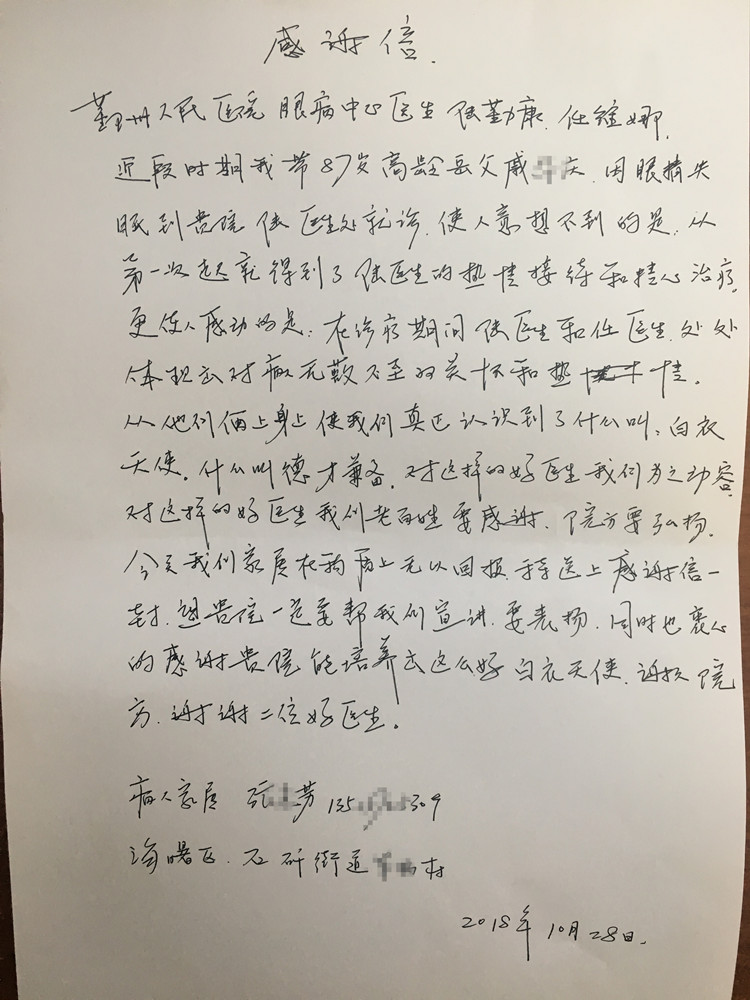 感谢信.
鄞州人民医院眼病中心医生 陆勤康. 任缩娜.
近段时期我带87岁高龄岳父戚 庆. 因眼睛失
眠到贵院陆医生处就诊. 使人意想不到的是. 从
第一次起就得到了陆医生的热情接待和精心治疗.
更使人感动的是: 在诊疗期间陆医生和任医生. 处处
体现出对病人无微不至的关怀和热情.
从他们俩上身上使我们真正认识到了什么叫: 白衣
天使. 什么叫德才兼备. 对这样的好医生我们为之动容.
对这样的好医生我们老百姓要感谢. 院方要弘扬.
今天我们家属在物质上无以回报. 送上感谢信一
封. 望贵院一定要帮我们宣讲. 要表扬. 同时也衷心
的感谢贵院能培养出这么好白衣天使. 谢谢院
方. 谢谢二位好医生。
病人家属 张 芳 135 309
海曙区. 石碶街道 村
2018年10月28日.